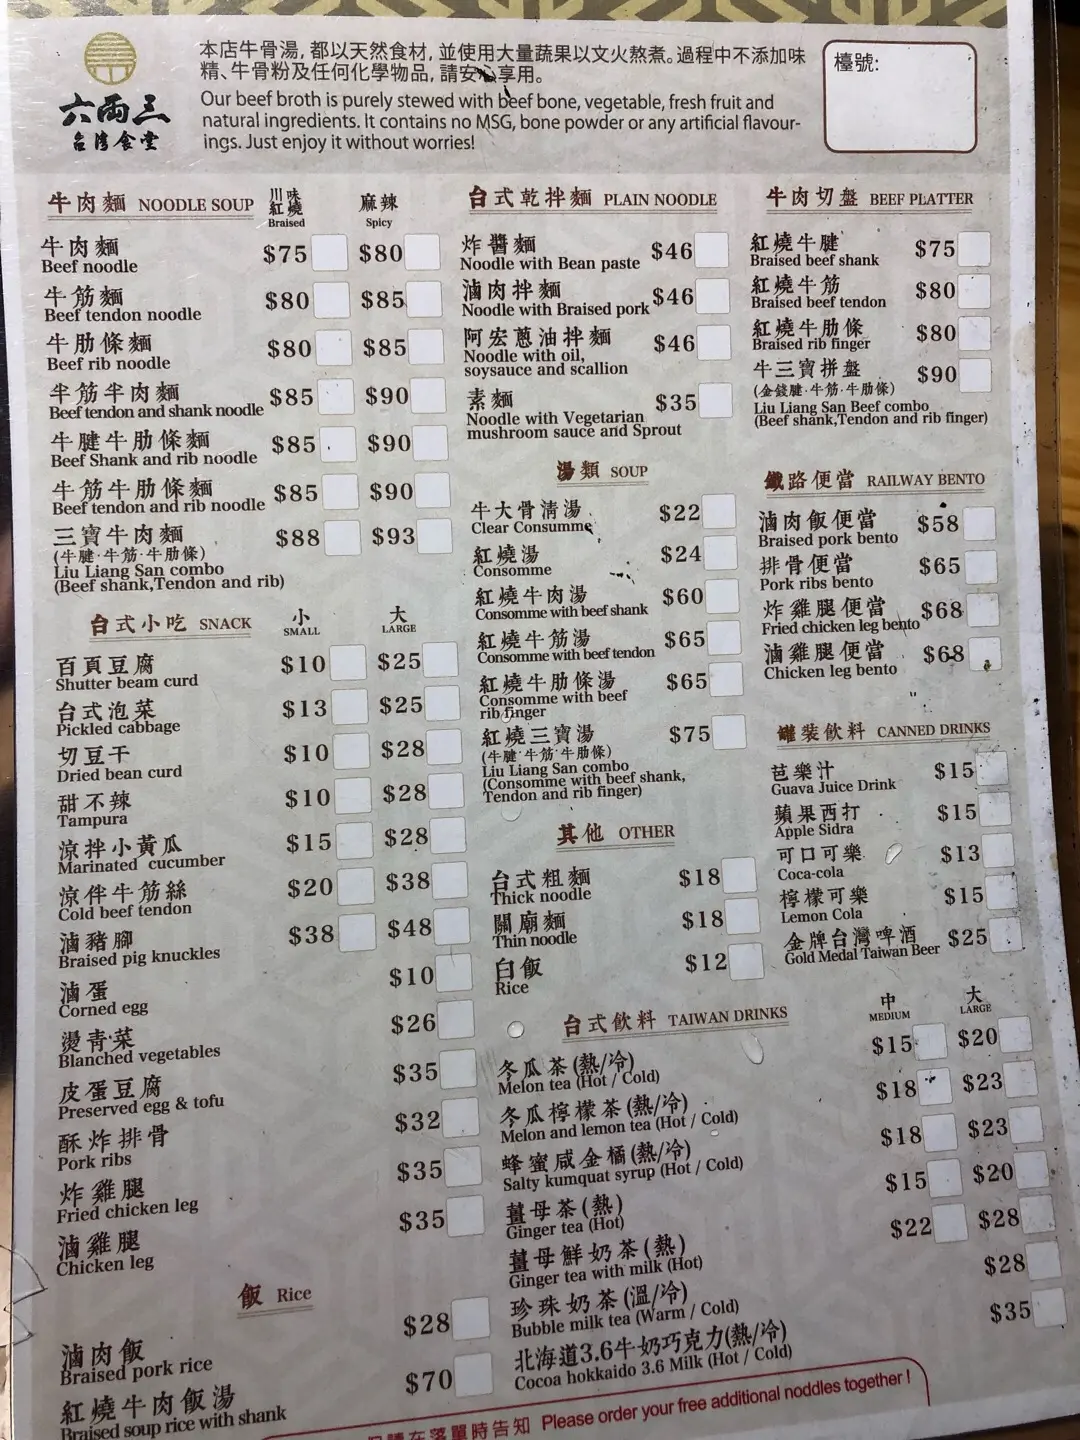 六兩三
台灣食堂
本店牛骨湯，都以天然食材，並使用大量蔬果以文火熬煮。過程中不添加味
精、牛骨粉及任何化學物品，請安心享用。
Our beef broth is purely stewed with beef bone, vegetable, fresh fruit and
natural ingredients. It contains no MSG, bone powder or any artificial flavour-
ings. Just enjoy it without worries!
檯號:
牛肉麵 NOODLE SOUP 川味紅燒 Braised 麻辣 Spicy
牛肉麵 $75 $80
Beef noodle
牛筋麵 $80 $85
Beef tendon noodle
牛肋條麵 $80 $85
Beef rib noodle
半筋半肉麵 $85 $90
Beef tendon and shank noodle
牛腱牛肋條麵 $85 $90
Beef Shank and rib noodle
牛筋牛肋條麵 $85 $90
Beef tendon and rib noodle
三寶牛肉麵 $88 $93
(牛腱·牛筋·牛肋條)
Liu Liang San combo
(Beef shank,Tendon and rib)
台式小吃 SNACK 小 SMALL 大 LARGE
百頁豆腐 $10 $25
Shutter beam curd
台式泡菜 $13 $25
Pickled cabbage
切豆干 $10 $28
Dried bean curd
甜不辣 $10 $28
Tampura
涼拌小黃瓜 $15 $28
Marinated cucumber
涼伴牛筋絲 $20 $38
Cold beef tendon
滷豬腳 $38 $48
Braised pig knuckles
滷蛋 $10
Corned egg
燙青菜 $26
Blanched vegetables
皮蛋豆腐 $35
Preserved egg & tofu
酥炸排骨 $32
Pork ribs
炸雞腿 $35
Fried chicken leg
滷雞腿 $35
Chicken leg
飯 Rice
滷肉飯 $28
Braised pork rice
紅燒牛肉飯湯 $70
Braised soup rice with shank
台式乾拌麵 PLAIN NOODLE
炸醬麵 $46
Noodle with Bean paste
滷肉拌麵 $46
Noodle with Braised pork
阿宏蔥油拌麵 $46
Noodle with oil,
soysauce and scallion
素麵 $35
Noodle with Vegetarian
mushroom sauce and Sprout
湯類 SOUP
牛大骨清湯 $22
Clear Consumme
紅燒湯 $24
Consomme
紅燒牛肉湯 $60
Consomme with beef shank
紅燒牛筋湯 $65
Consomme with beef tendon
紅燒牛肋條湯 $65
Consomme with beef
rib finger
紅燒三寶湯 $75
(牛腱·牛筋·牛肋條)
Liu Liang San combo
(Consomme with beef shank,
Tendon and rib finger)
其他 OTHER
台式粗麵 $18
Thick noodle
關廟麵 $18
Thin noodle
白飯 $12
Rice
牛肉切盤 BEEF PLATTER
紅燒牛腱 $75
Braised beef shank
紅燒牛筋 $80
Braised beef tendon
紅燒牛肋條 $80
Braised rib finger
牛三寶拼盤 $90
(金錢腱·牛筋·牛肋條)
Liu Liang San Beef combo
(Beef shank,Tendon and rib finger)
鐵路便當 RAILWAY BENTO
滷肉飯便當 $58
Braised pork bento
排骨便當 $65
Pork ribs bento
炸雞腿便當 $68
Fried chicken leg bento
滷雞腿便當 $68
Chicken leg bento
罐裝飲料 CANNED DRINKS
芭樂汁 $15
Guava Juice Drink
蘋果西打 $15
Apple Sidra
可口可樂 $13
Coca-cola
檸檬可樂 $15
Lemon Cola
金牌台灣啤酒 $25
Gold Medal Taiwan Beer
台式飲料 TAIWAN DRINKS 中 MEDIUM 大 LARGE
冬瓜茶(熱/冷) $15 $20
Melon tea (Hot / Cold)
冬瓜檸檬茶(熱/冷) $18 $23
Melon and lemon tea (Hot / Cold)
蜂蜜咸金橘(熱/冷) $18 $23
Salty kumquat syrup (Hot / Cold)
薑母茶(熱) $15 $20
Ginger tea (Hot)
薑母鮮奶茶(熱) $22 $28
Ginger tea with milk (Hot)
珍珠奶茶(溫/冷) $28
Bubble milk tea (Warm / Cold)
北海道3.6牛奶巧克力(熱/冷) $35
Cocoa hokkaido 3.6 Milk (Hot / Cold)
請在落單時告知 Please order your free additional noddles together !